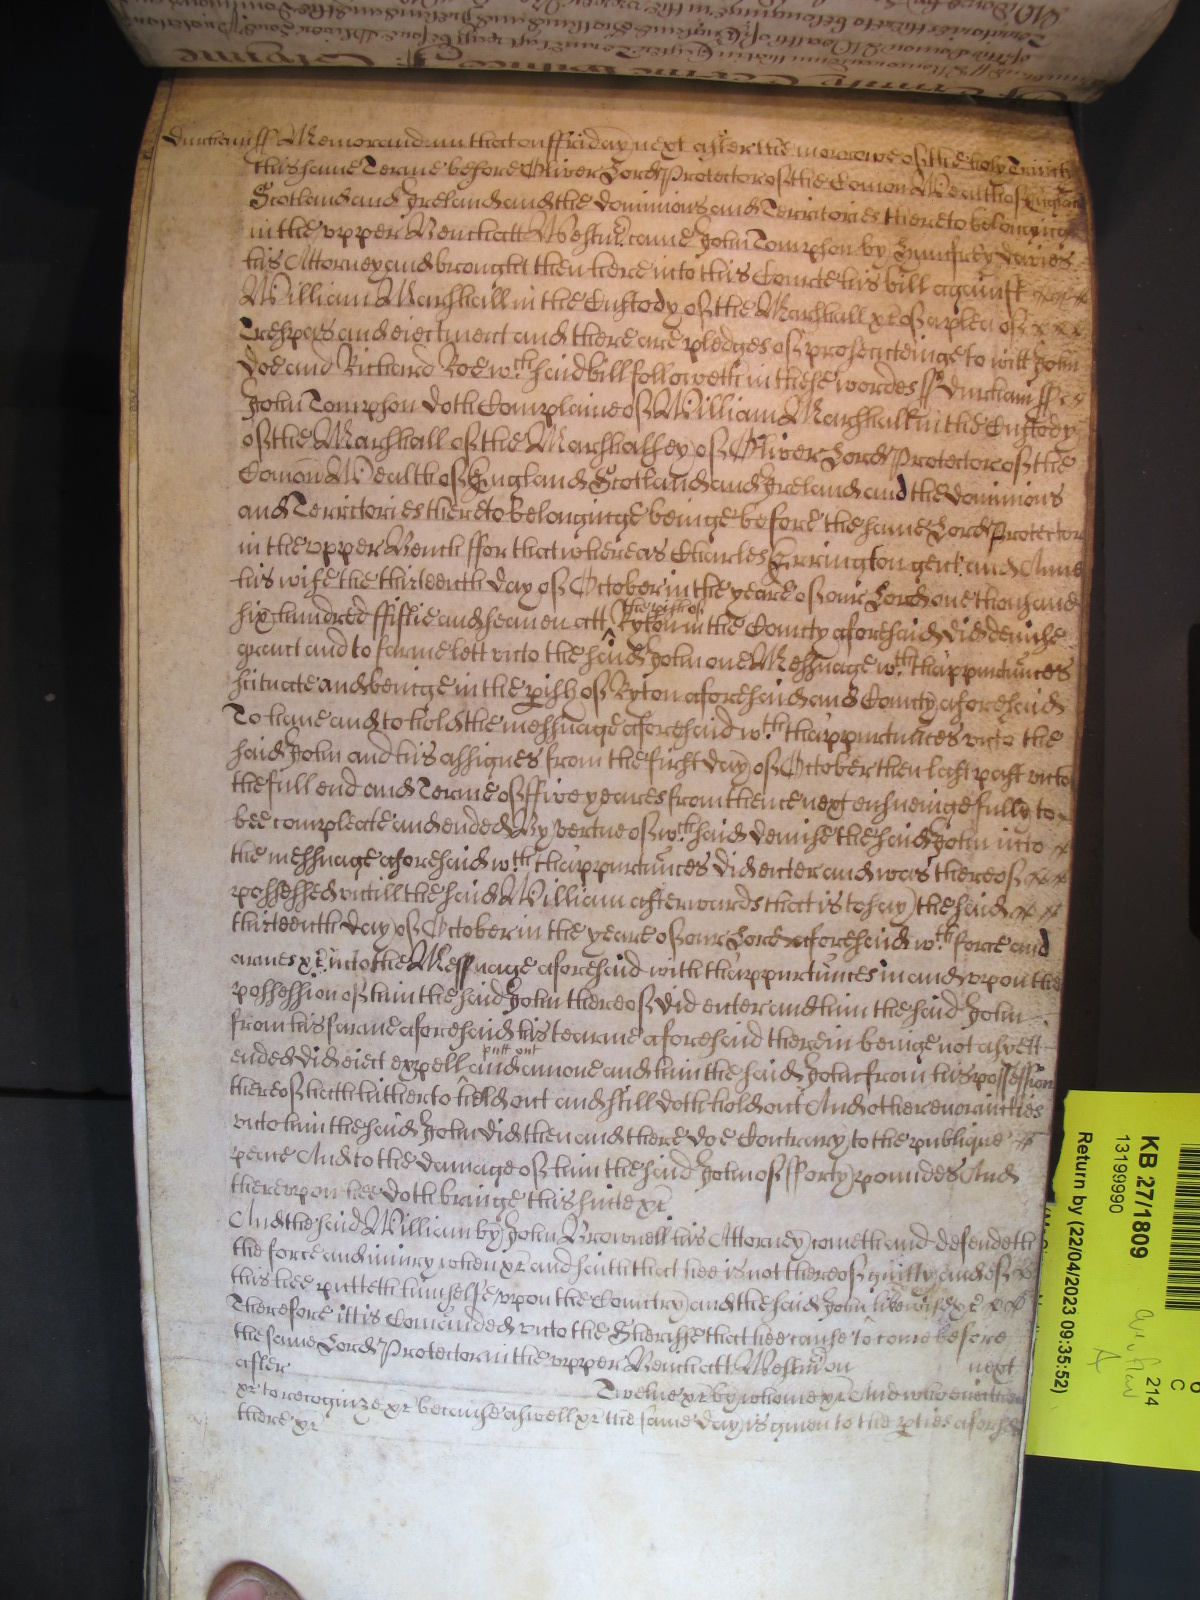 Durham ss Memorandum that on ffriday next after the morrowe of the holy Trinity
this same Terme before Oliver Lord Protector of the Comon Wealth of England
Scotland and Ireland and the dominions and Territories thereto belonginge
in the vpper Bench att Westmr. came John Tompson by Humfrey Davies
his Attorney and brought then here into this Courte his bill against
William Marshall in the Custody of the Marshall &c of a plea of
Trespas and eiectment and there are pledges of prosecutinge to witt John
Doe and Richard Roe wch. said bill followeth in these wordes ss Durham ss
John Tompson doth Complaine of William Marshall in the Custody
of the Marshall of the Marshalsey of Oliver Lord Protector of the
Comon Wealth of England Scotland and Ireland and the dominions
and Territories thereto belonginge beinge before the same Lord Protector
in the vpper Bench ffor that whereas Charles Errington gent. and Anne
his wife the thirteenth day of October in the yeare of our Lord one thousand
six hundred ffiftie and seaven att the pish of Ryton in the County aforesaid did demise
graunt and to farme lett vnto the said John one Messuage wth. thappurtunces
scituate and beinge in the pish of Ryton aforesaid and County aforesaid
To have and to hold the messuage aforesaid wth. thappurtunces vnto the
said John and his assignes from the first day of October then last past vnto
the full end and Terme of ffive yeares from thence next ensueinge fully to
bee compleate and ended By vertue of wch. said demise the said John into
the messuage aforesaid wth. thappurtunces did enter and was thereof
possessed vntill the said William afterwards that is to say the said
thirteenth day of October in the yeare of our Lord aforesaid wth. force and
armes &c into the Messuage aforesaid with thappurtunces in and vpon the
possession of him the said John thereof did enter and him the said John
from his farme aforesaid his tearme aforesaid therein beinge not as yett
ended did eiect expell putt out and amove and him the said John from his possession
thereof hath hitherto held out and still doth hold out And other enormities
vnto him the said John did then and there doe Contrary to the publique
peace And to the damage of him the said John of fforty poundes And
therevpon hee doth bringe this suite &c
And the said William by John Brownell his Attorney cometh and defendeth
the force and iniury when &c and saith that hee is not thereof guilty and of
this hee putteth himselfe vpon the Country and the said John likewise &c
Therefore itt is Comanded vnto the Sheriffe that hee cause to come before
the same Lord Protector in the vpper Bench att Westmr. on next
after Twelve &c by whome &c And who neither
&c to recognize &c because aswell &c the same day is given to the pties aforesd
there &c
KB 27/1809
13199990
Return by (22/04/2023 09:35:52)
214
C